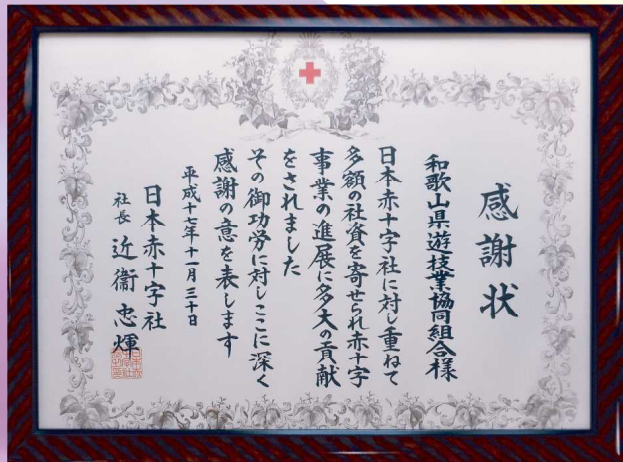 感謝状
和歌山県遊技業協同組合様
日本赤十字社に対し重ねて
多額の社資を寄せられ赤十字
事業の進展に多大の貢献
をされました
その御功労に対しここに深く
感謝の意を表します
平成十七年十一月三十日
日本赤十字社
社長 近衞忠煇